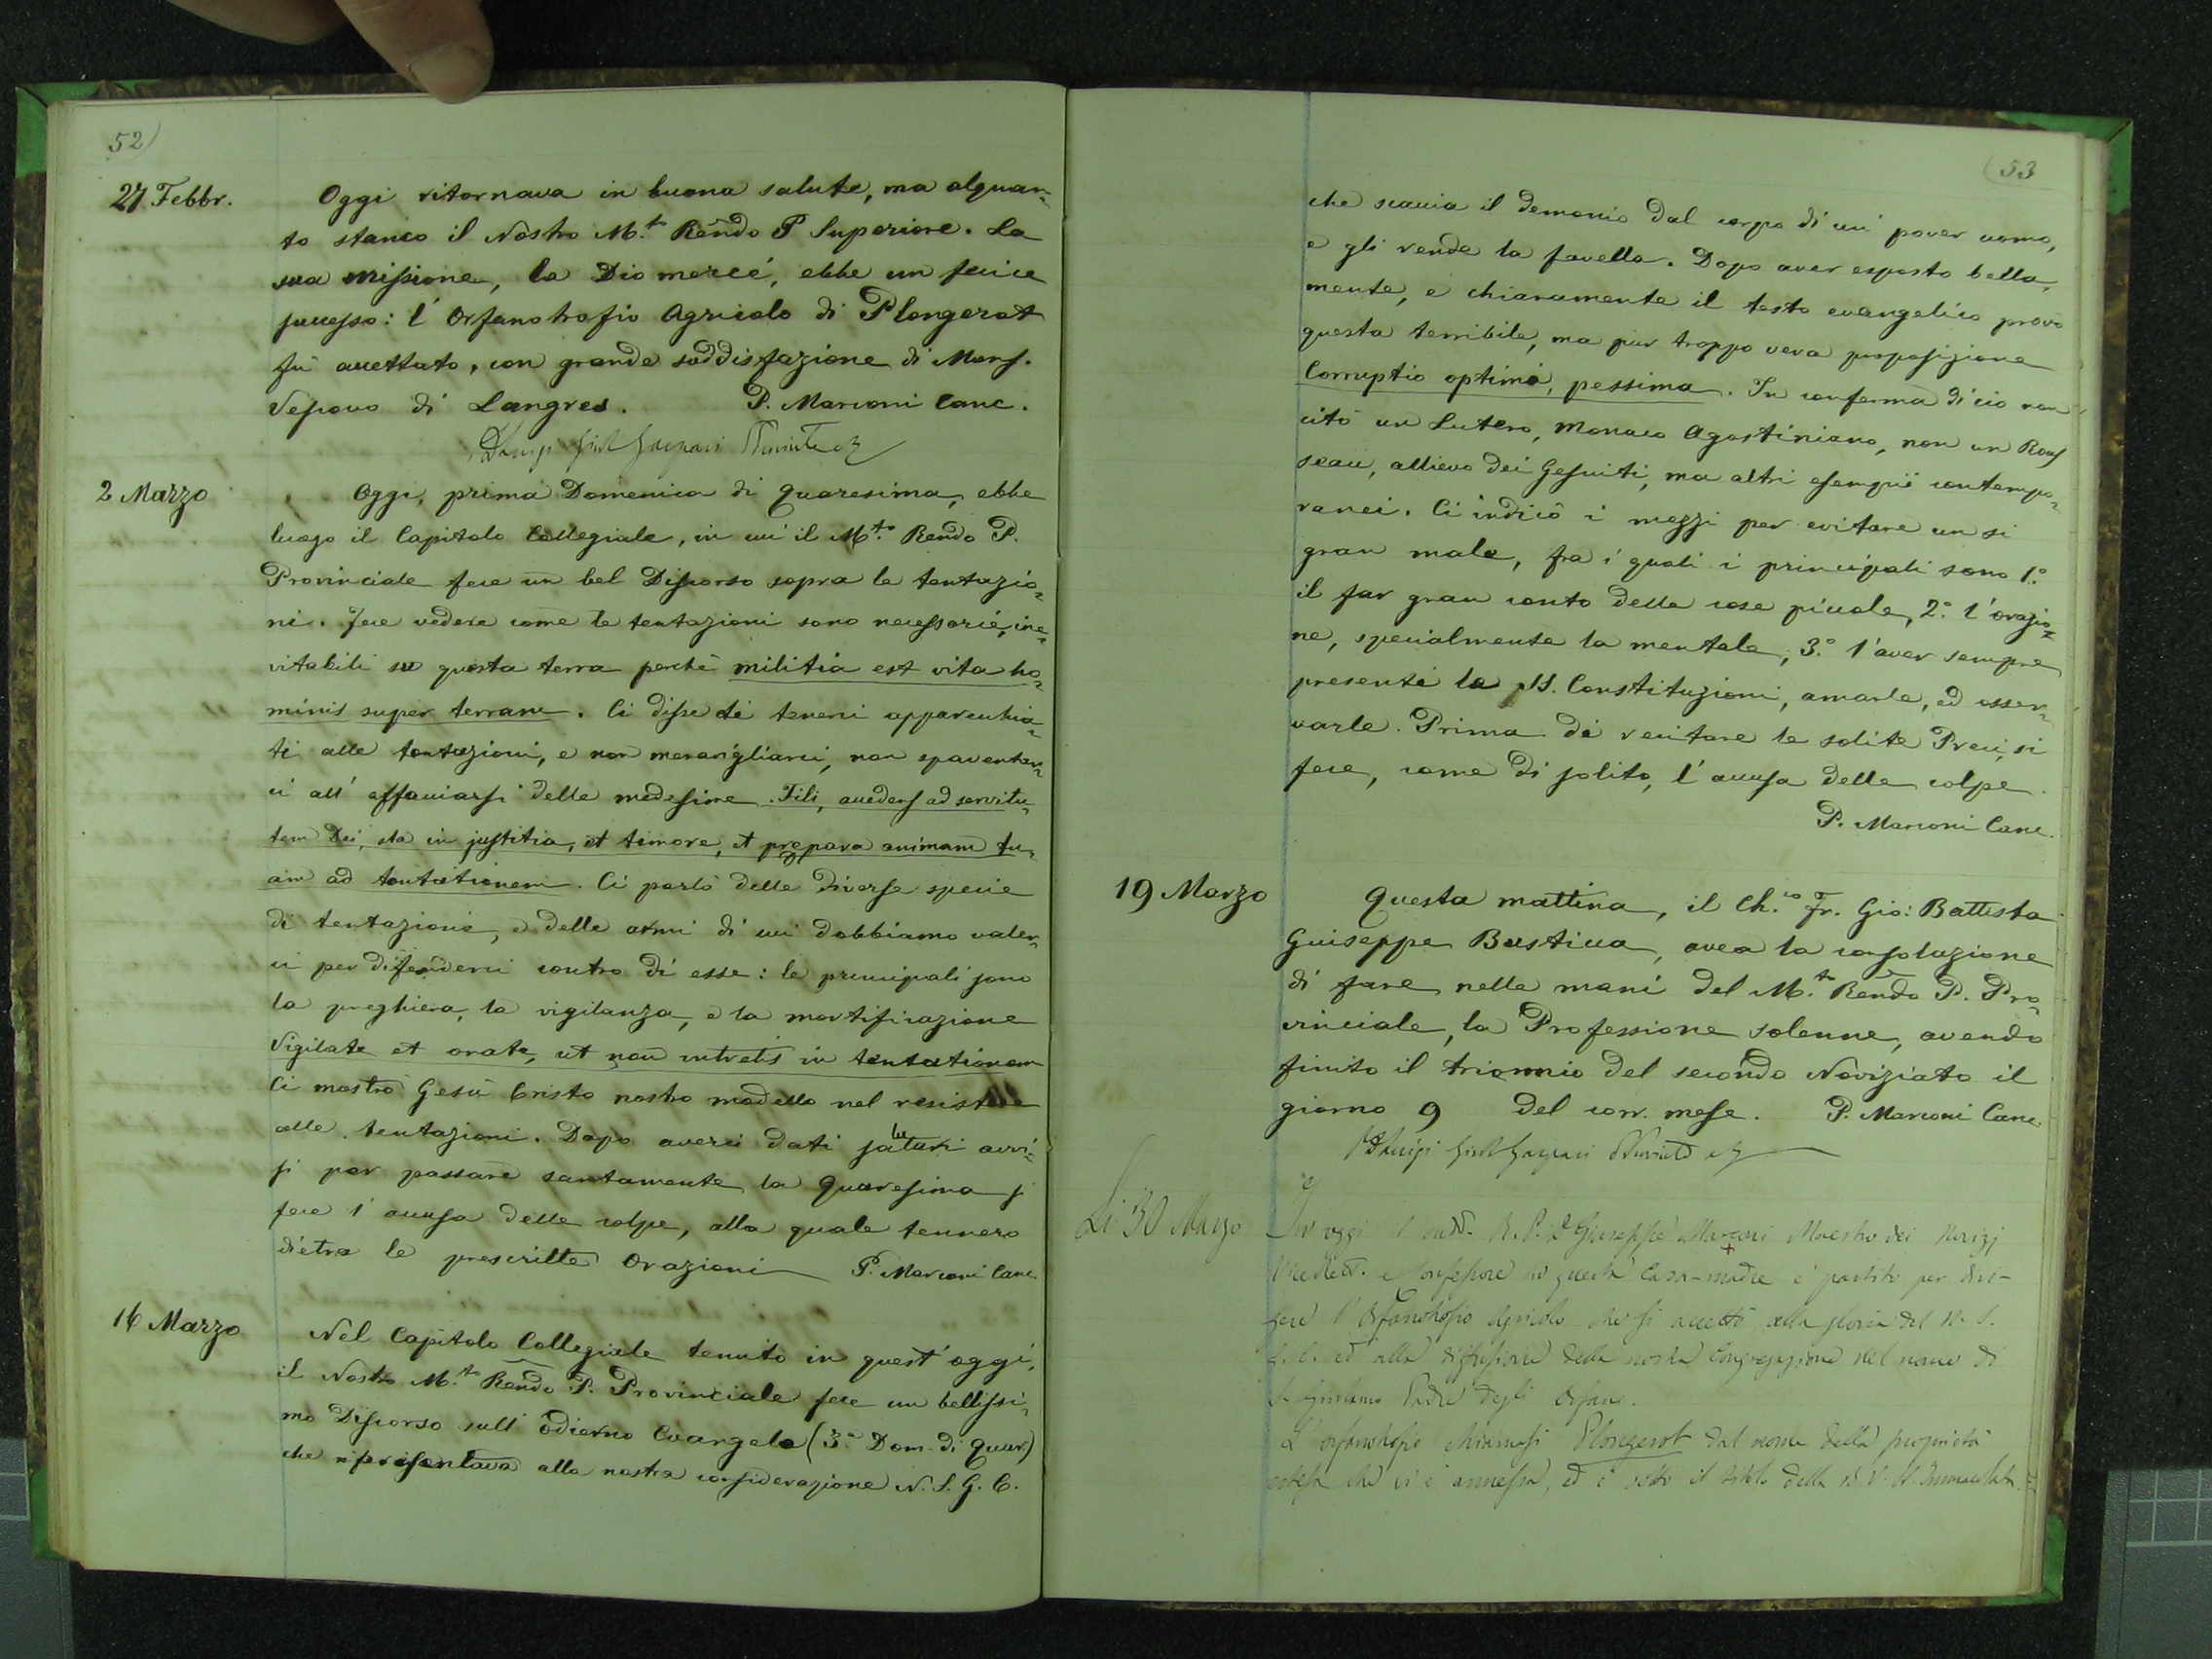 52)
27 Febbr.
Oggi ritornava in buona salute, ma alquan-
to stanco il Nostro M.to Rendo P Superiore. La
sua missione, la Dio mercé, ebbe un felice
successo: l'Orfanotrofio Agricolo di Plongerot
fu accettato, con grande soddisfazione di Mons.
Vescovo di Langres. P. Marconi Canc.
2 Marzo
Oggi, prima Domenica di Quaresima, ebbe
luogo il Capitolo Collegiale, in cui il M.to Rendo P.
Provinciale fece un bel Discorso sopra le tentazio-
ni. Fece vedere come le tentazioni sono necessarie, ine-
vitabili su questa terra perchè militia est vita ho-
minis super terram. Ci disse di tenerci apparecchia-
ti alle tentazioni, e non meravigliarci, non spaventar-
ci all'affacciarsi delle medesime. Fili, accedens ad servitu-
tem Dei, sta in justitia, et timore, et prepara animam tu-
am ad tentationem. Ci parlò delle diverse specie
di tentazioni, e delle armi di cui dobbiamo valer-
ci per difenderci contro di esse: le principali sono
la preghiera, la vigilanza, e la mortificazione
Vigilate et orate, ut non intretis in tentationem
Ci mostrò Gesù Cristo nostro modello nel resistere
alle tentazioni. Dopo averci dati salutari avvi-
si per passare santamente la Quaresima si
fece l'accusa delle colpe, alla quale tennero
dietro le prescritte Orazioni P. Marconi Canc.
16 Marzo
Nel Capitolo Collegiale tenuto in quest'oggi,
il Nostro M.to Rendo P. Provinciale fece un bellissi-
mo Discorso sull'odierno Evangelo (3.a Dom. di Quar.)
che ripresentava alla nostra considerazione N. S. G. C.
(53
che scaccia il demonio dal corpo di un pover uomo,
e gli rende la favella. Dopo aver esposto bella-
mente, e chiaramente il testo evangelico provò
questa terribile, ma pur troppo vera proposizione
Corruptio optimi, pessima. In conferma di ciò non
citò un Lutero, Monaco Agostiniano, non un Rous
seau, allievo dei Gesuiti, ma altri esempii contempo-
ranei. Ci indicò i mezzi per evitare un si
gran male, fra i quali i principali sono 1.°
il far gran conto delle cose piccole, 2.° l'orazio-
ne, specialmente la mentale, 3.° l'aver sempre
presenti le SS. Constituzioni, amarle, ed osser-
varle. Prima di recitare le solite Preci, si
fece, come di solito, l'accusa delle colpe.
P. Marconi Canc.
19 Marzo
Questa mattina, il Ch.co Fr. Gio: Battista
Guiseppe Bustica, avea la consolazione
di fare nelle mani del M.to Rendo P. Pro-
vinciale, la Professione solenne, avendo
finito il triennio del secondo Noviziato il
giorno 9 del corr. mese. P. Marconi Canc.
Li 30 Marzo
oggi il M. R. P. D. Giuseppe Marconi Maestro dei Novizj
e Confessore in questa Casa-madre è partito per diri-
gere l'Orfanotrofio Agricolo che si accettò alla gloria del N. S.
G. C. ed alla diffusione della nostra Congregazione nel nome di
S. Girolamo Padre degli Orfani.
L'orfanotrofio chiamasi Plongerot dal nome della proprietà
estesa che vi è annessa, ed è sotto il titolo della B. V. M. Immacolata.